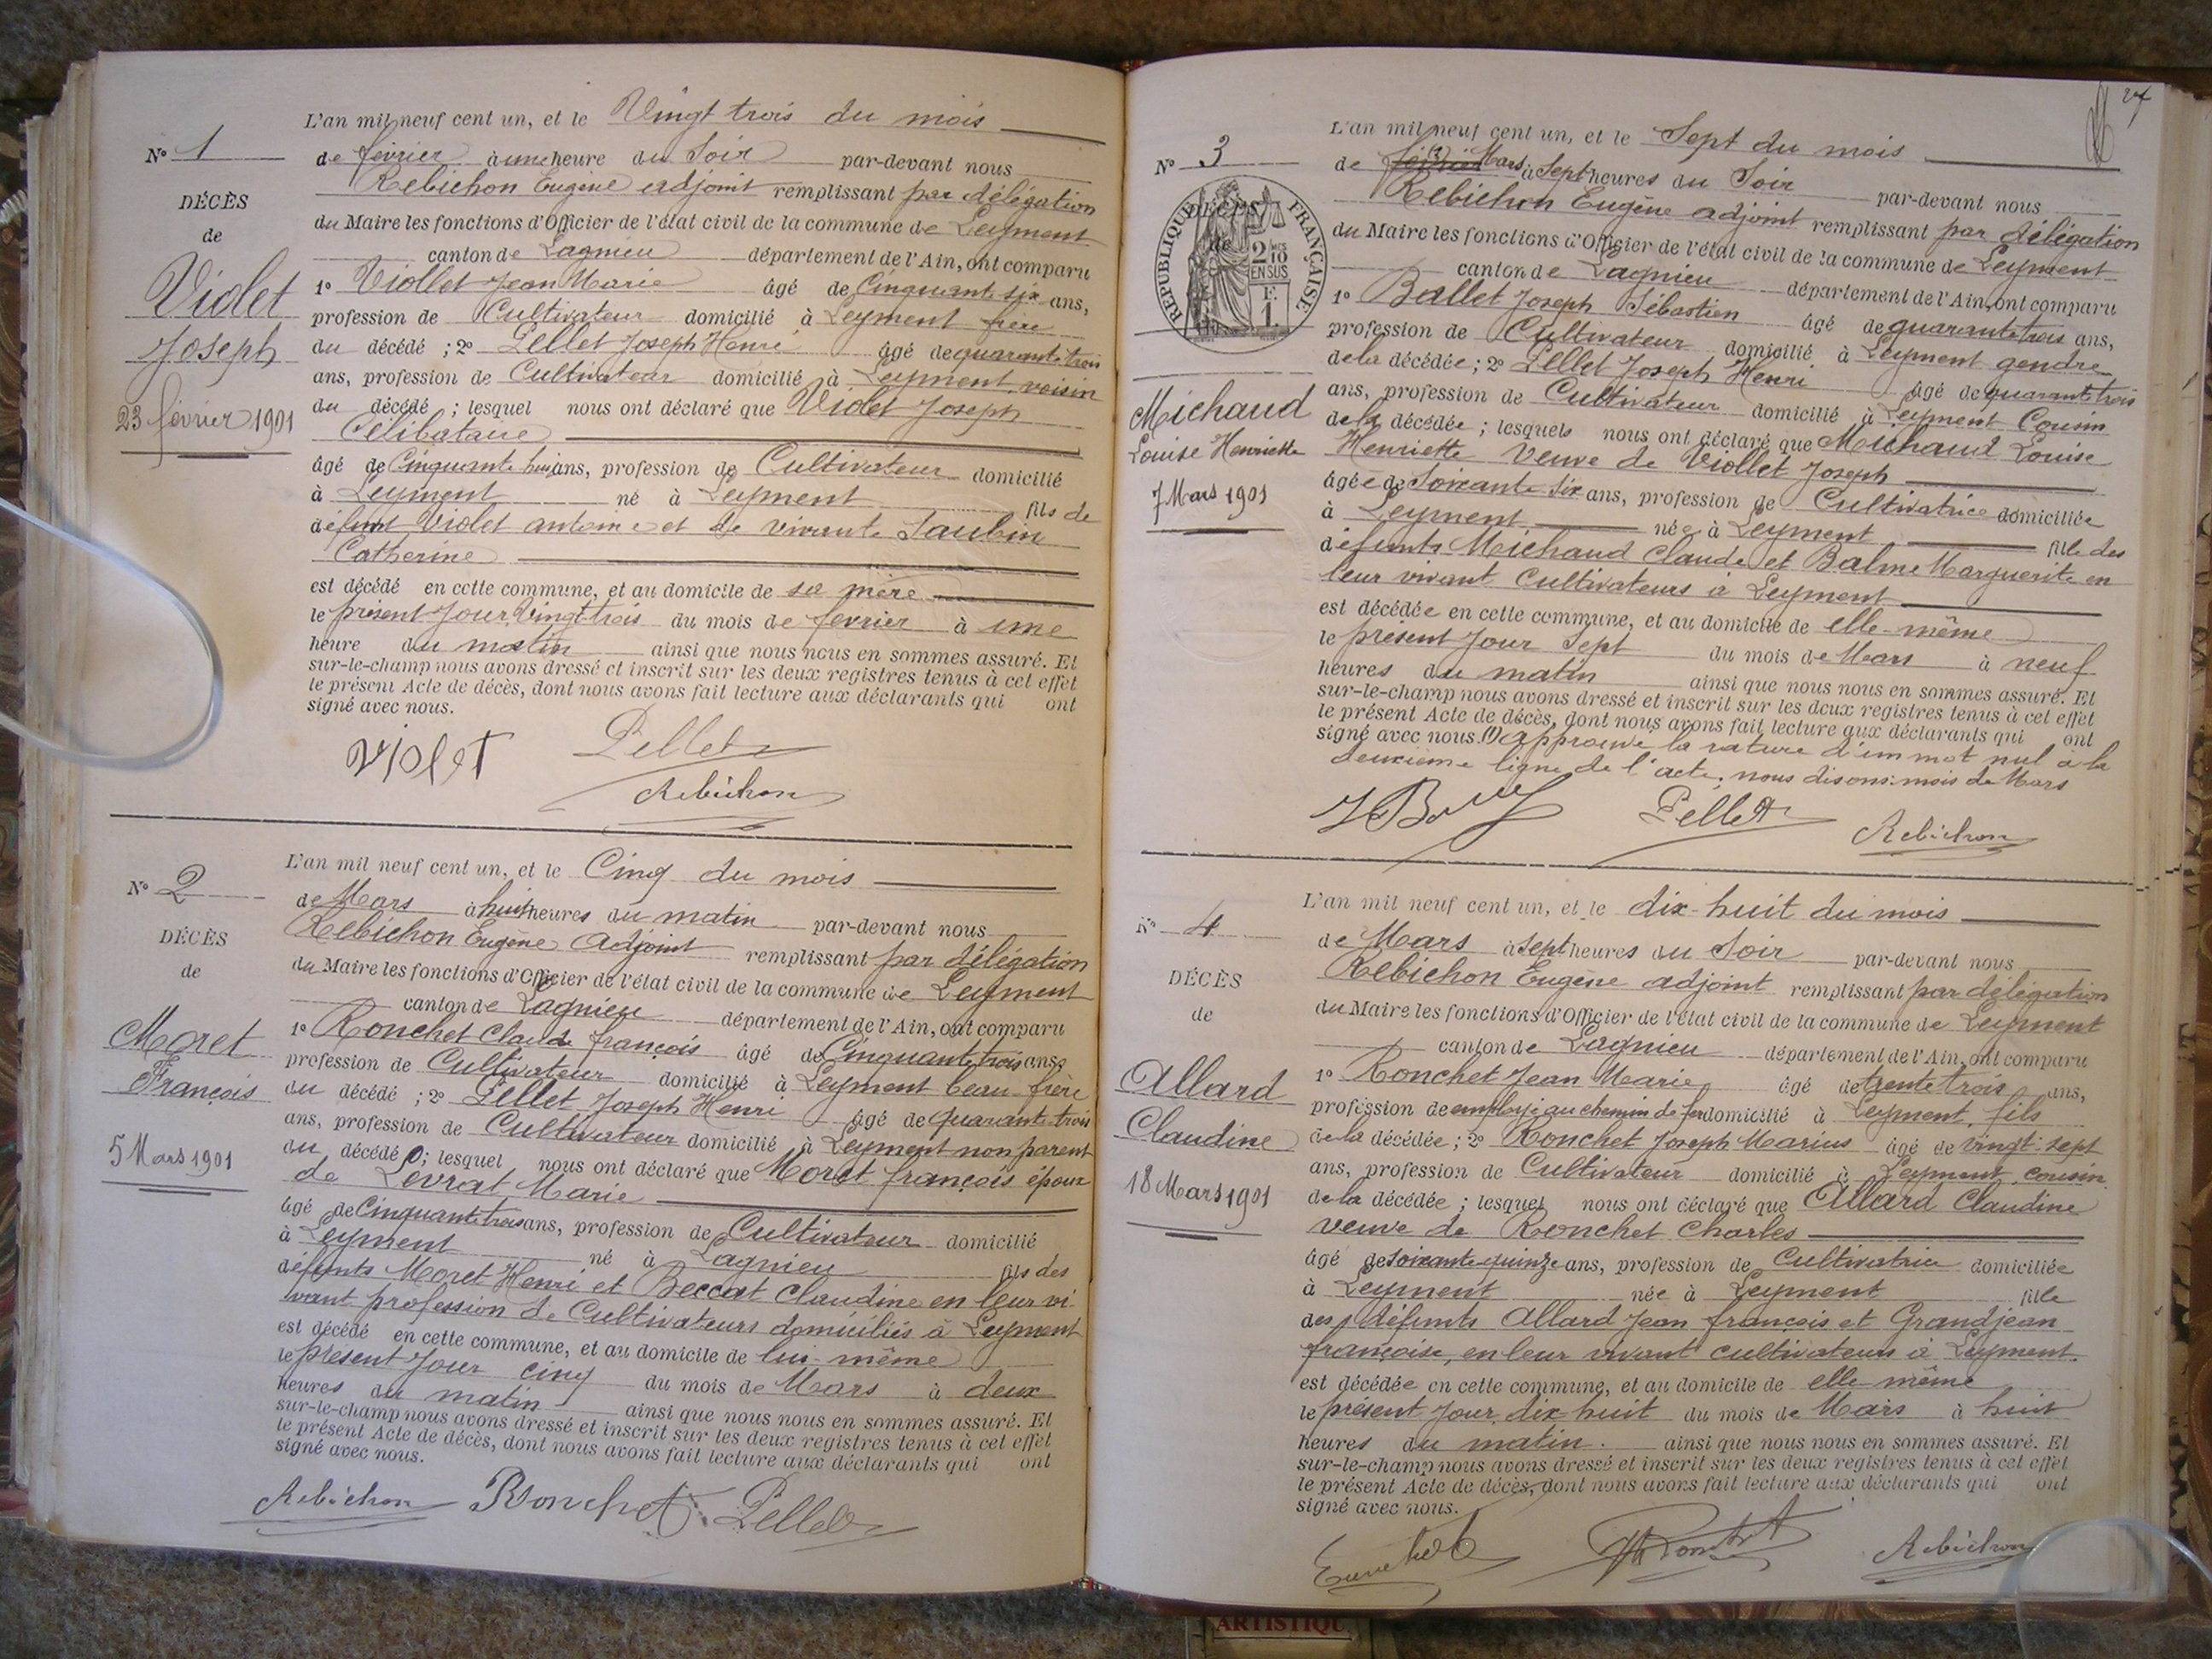 L'an mil neuf cent un, et le Vingt trois du mois
N° 1
de février à une heure du Soir par-devant nous
Rebichon Eugène adjoint remplissant par délégation
DÉCÈS
de
du Maire les fonctions d'Officier de l'état civil de la commune de Leyment
canton de Lagnieu département de l'Ain, ont comparu
Violet
Joseph
23 février 1901
1° Viollet Jean Marie âgé de Cinquante six ans,
profession de Cultivateur domicilié à Leyment frère
du décédé ; 2° Pellet Joseph Henri âgé de quarante trois
ans, profession de Cultivateur domicilié à Leyment voisin
du décédé ; lesquel nous ont déclaré que Violet Joseph
Célibataire
âgé de Cinquante huit ans, profession de Cultivateur domicilié
à Leyment né à Leyment fils de
défunt Violet antoine et de vivante Saubin
Catherine
est décédé en cette commune, et au domicile de sa mère
le présent Jour Vingt trois du mois de fevrier à une
heure du matin ainsi que nous nous en sommes assuré. Et
sur-le-champ nous avons dressé et inscrit sur les deux registres tenus à cet effet
le présent Acte de décès, dont nous avons fait lecture aux déclarants qui ont
signé avec nous.
Violet Pellet
Rebichon
L'an mil neuf cent un, et le Cinq du mois
N° 2
de Mars à huit heures du matin par-devant nous
Rebichon Eugène Adjoint remplissant par délégation
DÉCÈS
de
du Maire les fonctions d'Officier de l'état civil de la commune de Leyment
canton de Lagnieu département de l'Ain, ont comparu
Moret
François
5 Mars 1901
1° Ronchet Claude françois âgé de Cinquante trois ans,
profession de Cultivateur domicilié à Leyment beau-frère
du décédé ; 2° Pellet Joseph Henri âgé de quarante trois
ans, profession de Cultivateur domicilié à Leyment non parent
du décédé ; lesquel nous ont déclaré que Moret françois époux
de Levrat Marie
âgé de Cinquante trois ans, profession de Cultivateur domicilié
à Leyment né à Lagnieu fils des
défunts Moret Henri et Beccat Claudine en leur vi
vant profession de Cultivateurs domiciliés à Leyment
est décédé en cette commune, et au domicile de lui-même
le présent Jour cinq du mois de Mars à deux
heures du matin ainsi que nous nous en sommes assuré. Et
sur-le-champ nous avons dressé et inscrit sur les deux registres tenus à cet effet
le présent Acte de décès, dont nous avons fait lecture aux déclarants qui ont
signé avec nous.
Rebichon Ronchet Pellet
L'an mil neuf cent un, et le Sept du mois
N° 3
de février (1) Mars à Sept heures du Soir par-devant nous
Rebichon Eugène adjoint remplissant par délégation
DÉCÈS
de
RÉPUBLIQUE FRANÇAISE
2 10 EN SUS
du Maire les fonctions d'Officier de l'état civil de la commune de Leyment
canton de Lagnieu département de l'Ain, ont comparu
1° Ballet Joseph Sébastien âgé de quarante trois ans,
profession de Cultivateur domicilié à Leyment gendre
de la décédée ; 2° Pellet Joseph Henri âgé de quarante trois
ans, profession de Cultivateur domicilié à Leyment Cousin
Michaud
Louise Henriette
7 Mars 1901
de la décédée ; lesquels nous ont déclaré que Michaud Louise
Henriette Veuve de Viollet Joseph
âgée de Soixante Six ans, profession de Cultivatrice domiciliée
à Leyment née à Leyment fille des
défunts Michaud Claude et Balme Marguerite en
leur vivant Cultivateurs à Leyment
est décédée en cette commune, et au domicile de elle-même
le présent Jour Sept du mois de Mars à neuf
heures du matin ainsi que nous nous en sommes assuré. Et
sur-le-champ nous avons dressé et inscrit sur les deux registres tenus à cet effet
le présent Acte de décès, dont nous avons fait lecture aux déclarants qui ont
signé avec nous. (1) approuvé la rature d'un mot nul à la
deuxième ligne de l'acte, nous disons: mois de Mars
Pellet Rebichon
L'an mil neuf cent un, et le dix-huit du mois
N° 4
de Mars à Sept heures du Soir par-devant nous
Rebichon Eugène adjoint remplissant par délégation
DÉCÈS
de
du Maire les fonctions d'Officier de l'état civil de la commune de Leyment
canton de Lagnieu département de l'Ain, ont comparu
Allard
Claudine
18 Mars 1901
1° Ronchet Jean Marie âgé de trente trois ans,
profession de employé au chemin de fer domicilié à Leyment, fils
de la décédée ; 2° Ronchet Joseph Marius âgé de vingt-sept
ans, profession de Cultivateur domicilié à Leyment, cousin
de la décédée ; lesquel nous ont déclaré que Allard Claudine
veuve de Ronchet Charles
âgé de soixante-quinze ans, profession de Cultivatrice domiciliée
à Leyment née à Leyment fille
des défunts Allard Jean françois et Grandjean
françoise, en leur vivant cultivateurs à Leyment.
est décédée en cette commune, et au domicile de elle même
le présent Jour dix huit du mois de Mars à huit
heures du matin. ainsi que nous nous en sommes assuré. Et
sur-le-champ nous avons dressé et inscrit sur les deux registres tenus à cet effet
le présent Acte de décès, dont nous avons fait lecture aux déclarants qui ont
signé avec nous.
Rebichon
ARTISTIQU